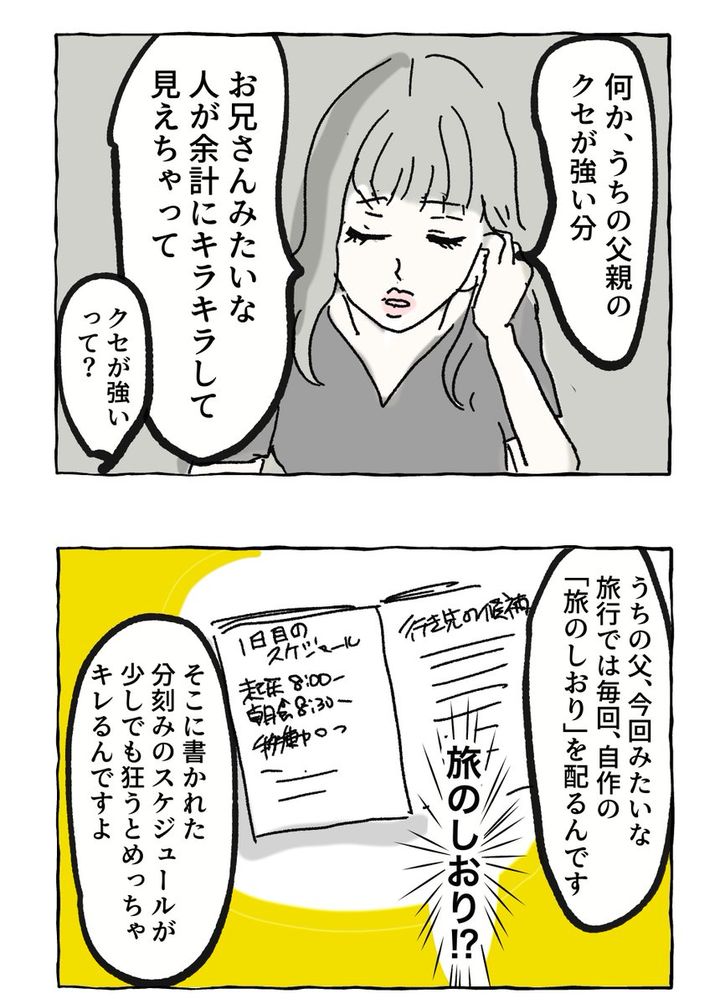 何か、うちの父親の
クセが強い分
お兄さんみたいな
人が余計にキラキラして
見えちゃって
クセが強い
って?
うちの父、今回みたいな
旅行では毎回、自作の
「旅のしおり」を配るんです
行き先の候補
1日目の
スケジュール
起床 8:00〜
朝会 8:30〜
旅のしおり!?
そこに書かれた
分刻みのスケジュールが
少しでも狂うとめっちゃ
キレるんですよ